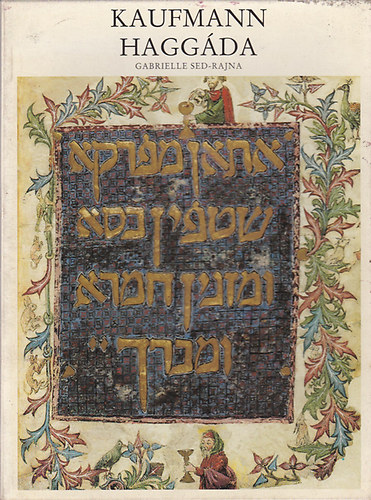 KAUFMANN
HAGGÁDA
GABRIELLE SED-RAJNA
אתאן מפרקא
שטפין כסא
ומזגין חמרא
ומברך יי